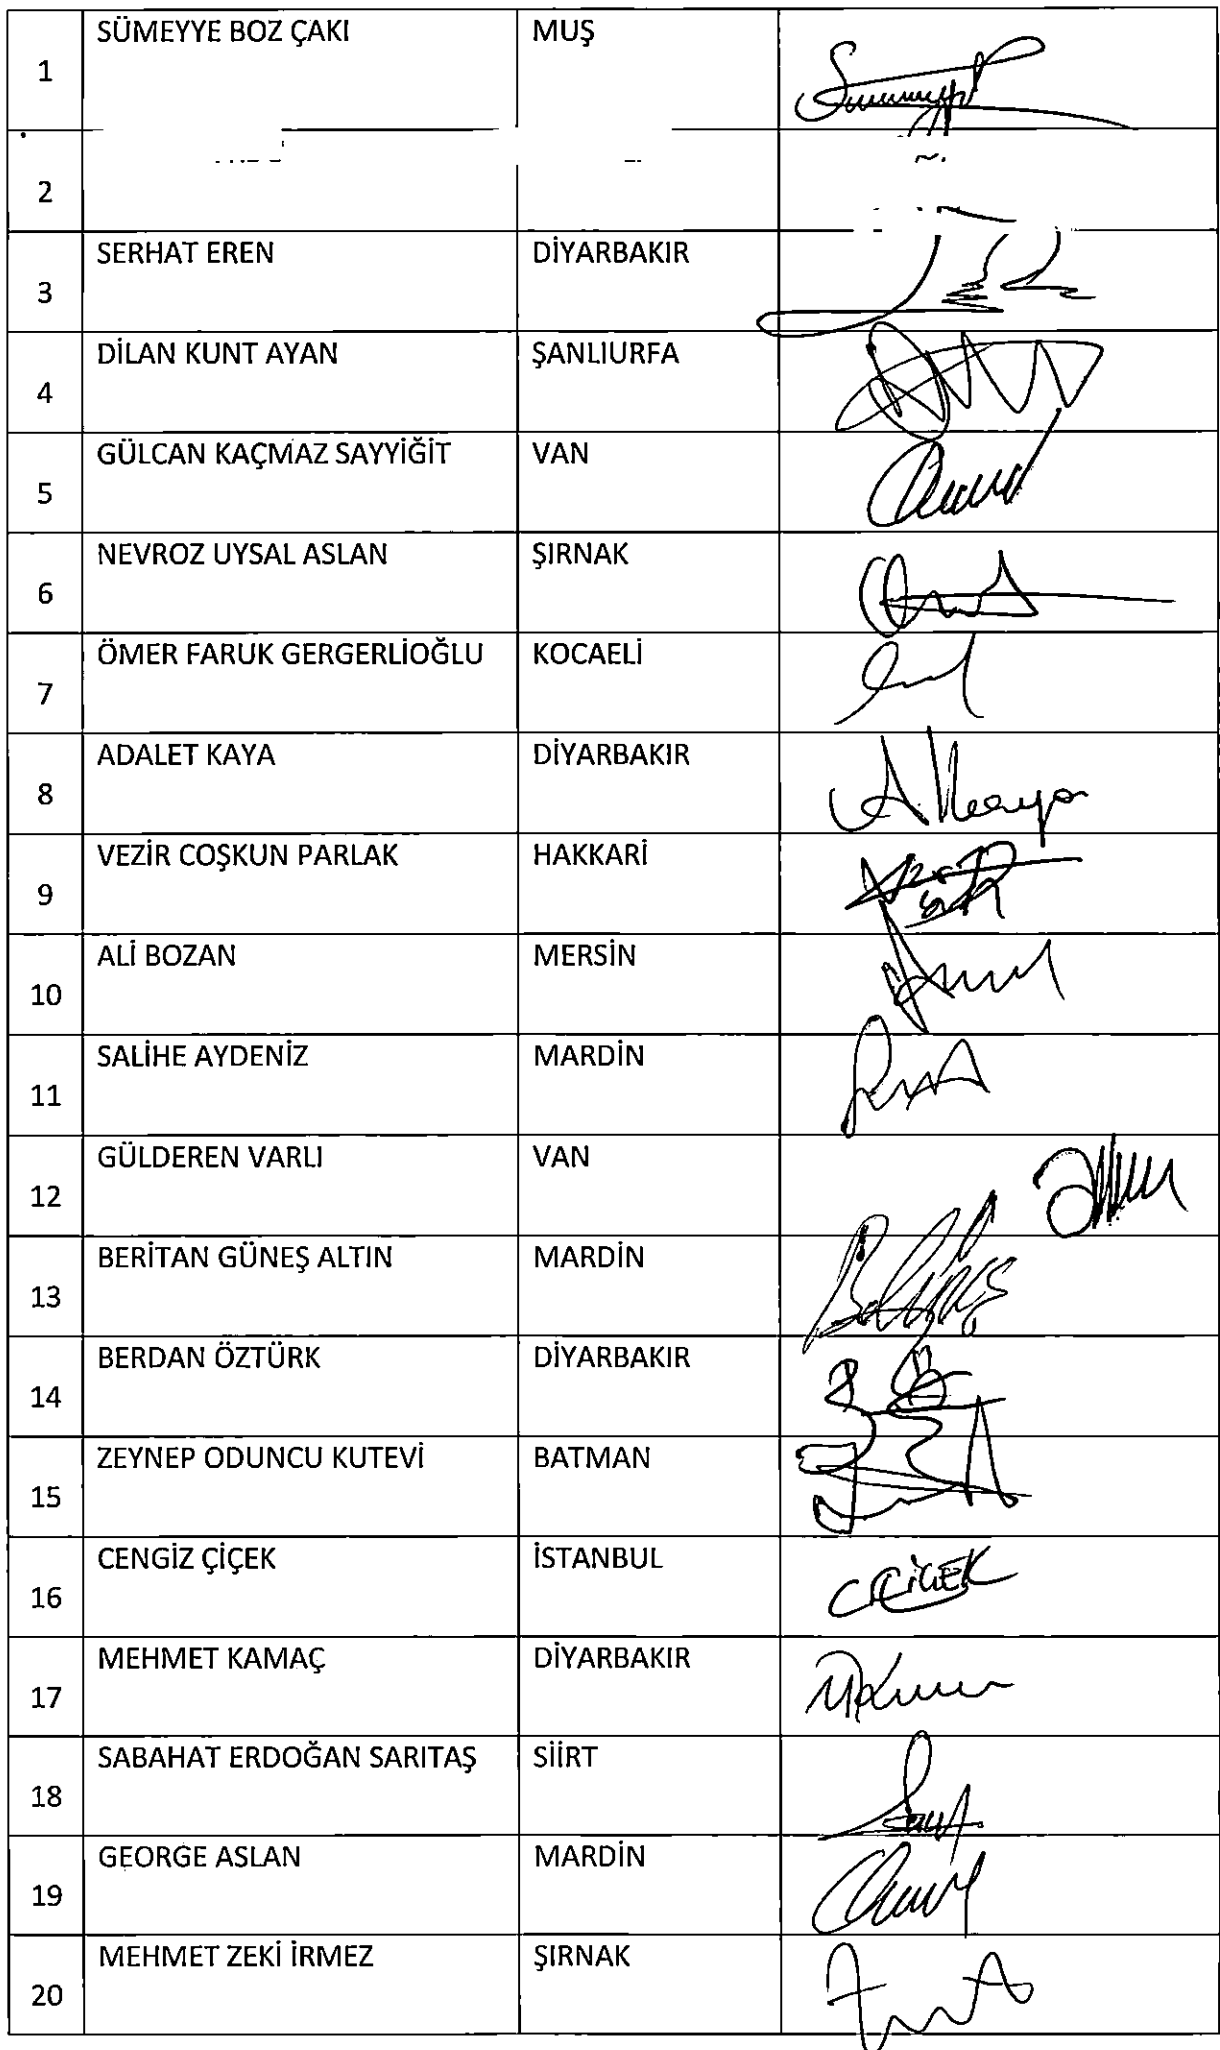 1 SÜMEYYE BOZ ÇAKI MUŞ
2
3 SERHAT EREN DİYARBAKIR
4 DİLAN KUNT AYAN ŞANLIURFA
5 GÜLCAN KAÇMAZ SAYYİĞİT VAN
6 NEVROZ UYSAL ASLAN ŞIRNAK
7 ÖMER FARUK GERGERLİOĞLU KOCAELİ
8 ADALET KAYA DİYARBAKIR
9 VEZİR COŞKUN PARLAK HAKKARİ
10 ALİ BOZAN MERSİN
11 SALİHE AYDENİZ MARDİN
12 GÜLDEREN VARLI VAN
13 BERİTAN GÜNEŞ ALTIN MARDİN
14 BERDAN ÖZTÜRK DİYARBAKIR
15 ZEYNEP ODUNCU KUTEVİ BATMAN
16 CENGİZ ÇİÇEK İSTANBUL
17 MEHMET KAMAÇ DİYARBAKIR
18 SABAHAT ERDOĞAN SARITAŞ SİİRT
19 GEORGE ASLAN MARDİN
20 MEHMET ZEKİ İRMEZ ŞIRNAK